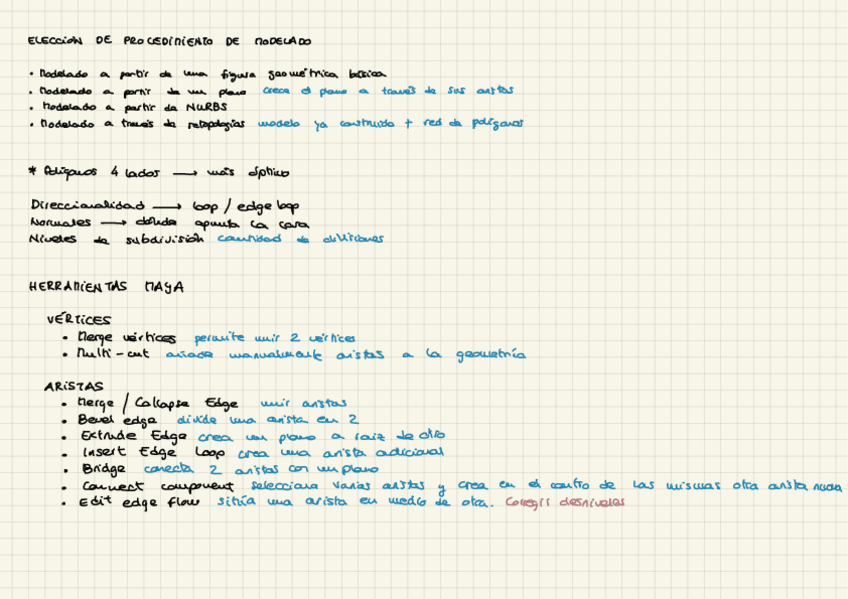 ELECCIÓN DE PROCEDIMIENTO DE MODELADO
• Modelado a partir de una figura geométrica básica
• Modelado a partir de un plano crece el plano a través de sus aristas
• Modelado a partir de NURBS
• Modelado a través de retopologías modelo ya construido + red de polígonos
* Polígonos 4 lados → más óptimo
Direccionalidad → loop / edge loop
Normales → dónde apunta la cara
Niveles de subdivisión cantidad de divisiones
HERRAMIENTAS MAYA
VÉRTICES
• Merge vértices permite unir 2 vértices
• Multi-cut añade manualmente aristas a la geometría
ARISTAS
• Merge / Collapse Edge unir aristas
• Bevel edge divide una arista en 2
• Extrude Edge crea un plano a raíz de otro
• Insert Edge Loop crea una arista adicional
• Bridge conecta 2 aristas con un plano
• Connect component selecciona varias aristas y crea en el centro de las mismas otra arista nueva
• Edit edge flow sitúa una arista en medio de otra. Corregir desniveles